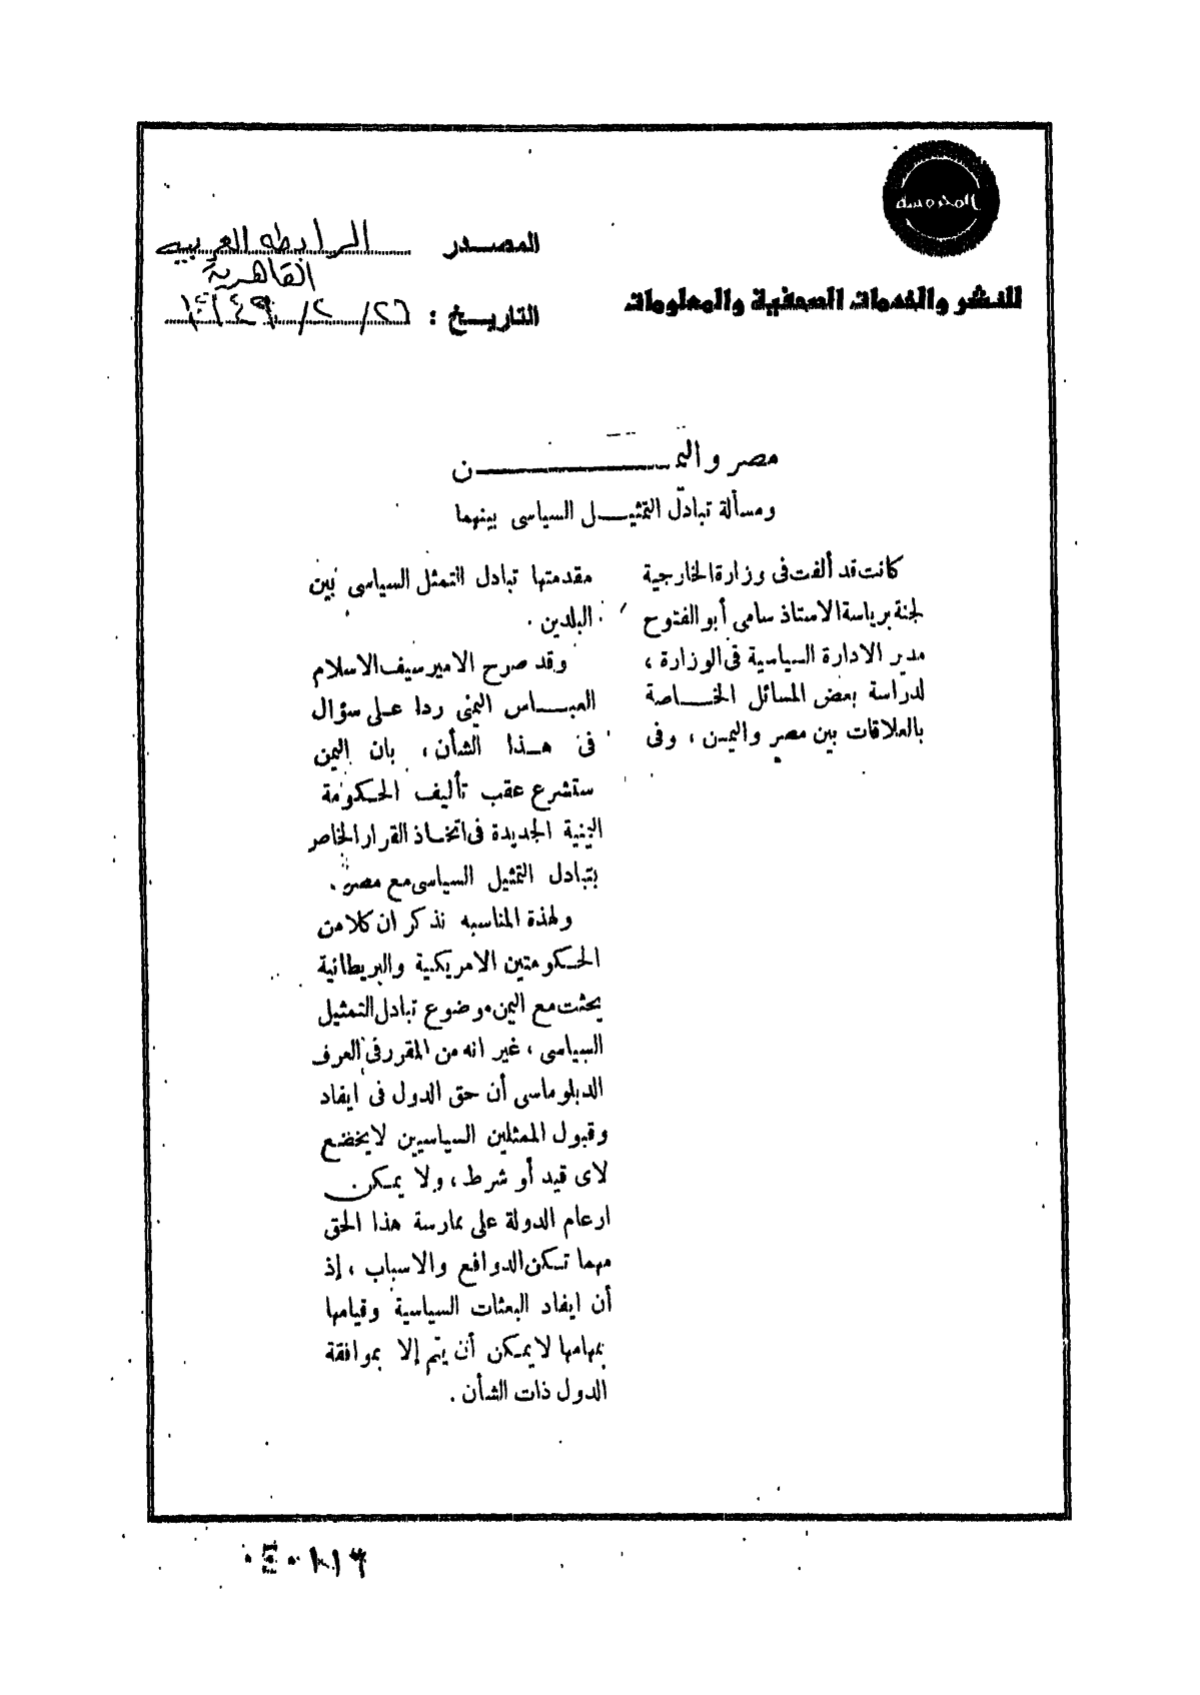 المحروسة
للنشر والخدمات الصحفية والمعلومات
المصدر الرابطه العربيه
القاهرية
التاريخ : ٢٦/ ٢/
مصر واليمن
ومسألة تبادل التمثيل السياسى بينهما
كانت قد ألفت فى وزارة الخارجية
لجنة برياسة الاستاذ سامى أبو الفتوح
مدير الادارة السياسية فى الوزارة ،
لدراسة بعض المسائل الخاصة
بالعلاقات بين مصر واليمن ، وفى
مقدمتها تبادل التمثل السياسى بين
البلدين .
وقد صرح الامير سيف الاسلام
العباس اليمنى ردا على سؤال
فى هذا الشأن ، بان اليمن
ستشرع عقب تأليف الحكومة
اليمنية الجديدة فى اتخاذ القرار الخاص
بتبادل التمثيل السياسى مع مصر .
ولهذة المناسبه نذكر ان كلا من
الحكومتين الامريكية والبريطانية
بحثت مع اليمن موضوع تبادل التمثيل
السياسى ، غير انه من المقرر فى العرف
الدبلوماسى أن حق الدول فى ايفاد
وقبول الممثلين السياسيين لا يخضع
لاى قيد أو شرط ، ولا يمكن
ارعام الدولة على ممارسة هذا الحق
مهما تكن الدوافع والاسباب ، إذ
أن ايفاد البعثات السياسية وقيامها
بمهامها لا يمكن أن يتم إلا بموافقة
الدول ذات الشأن .